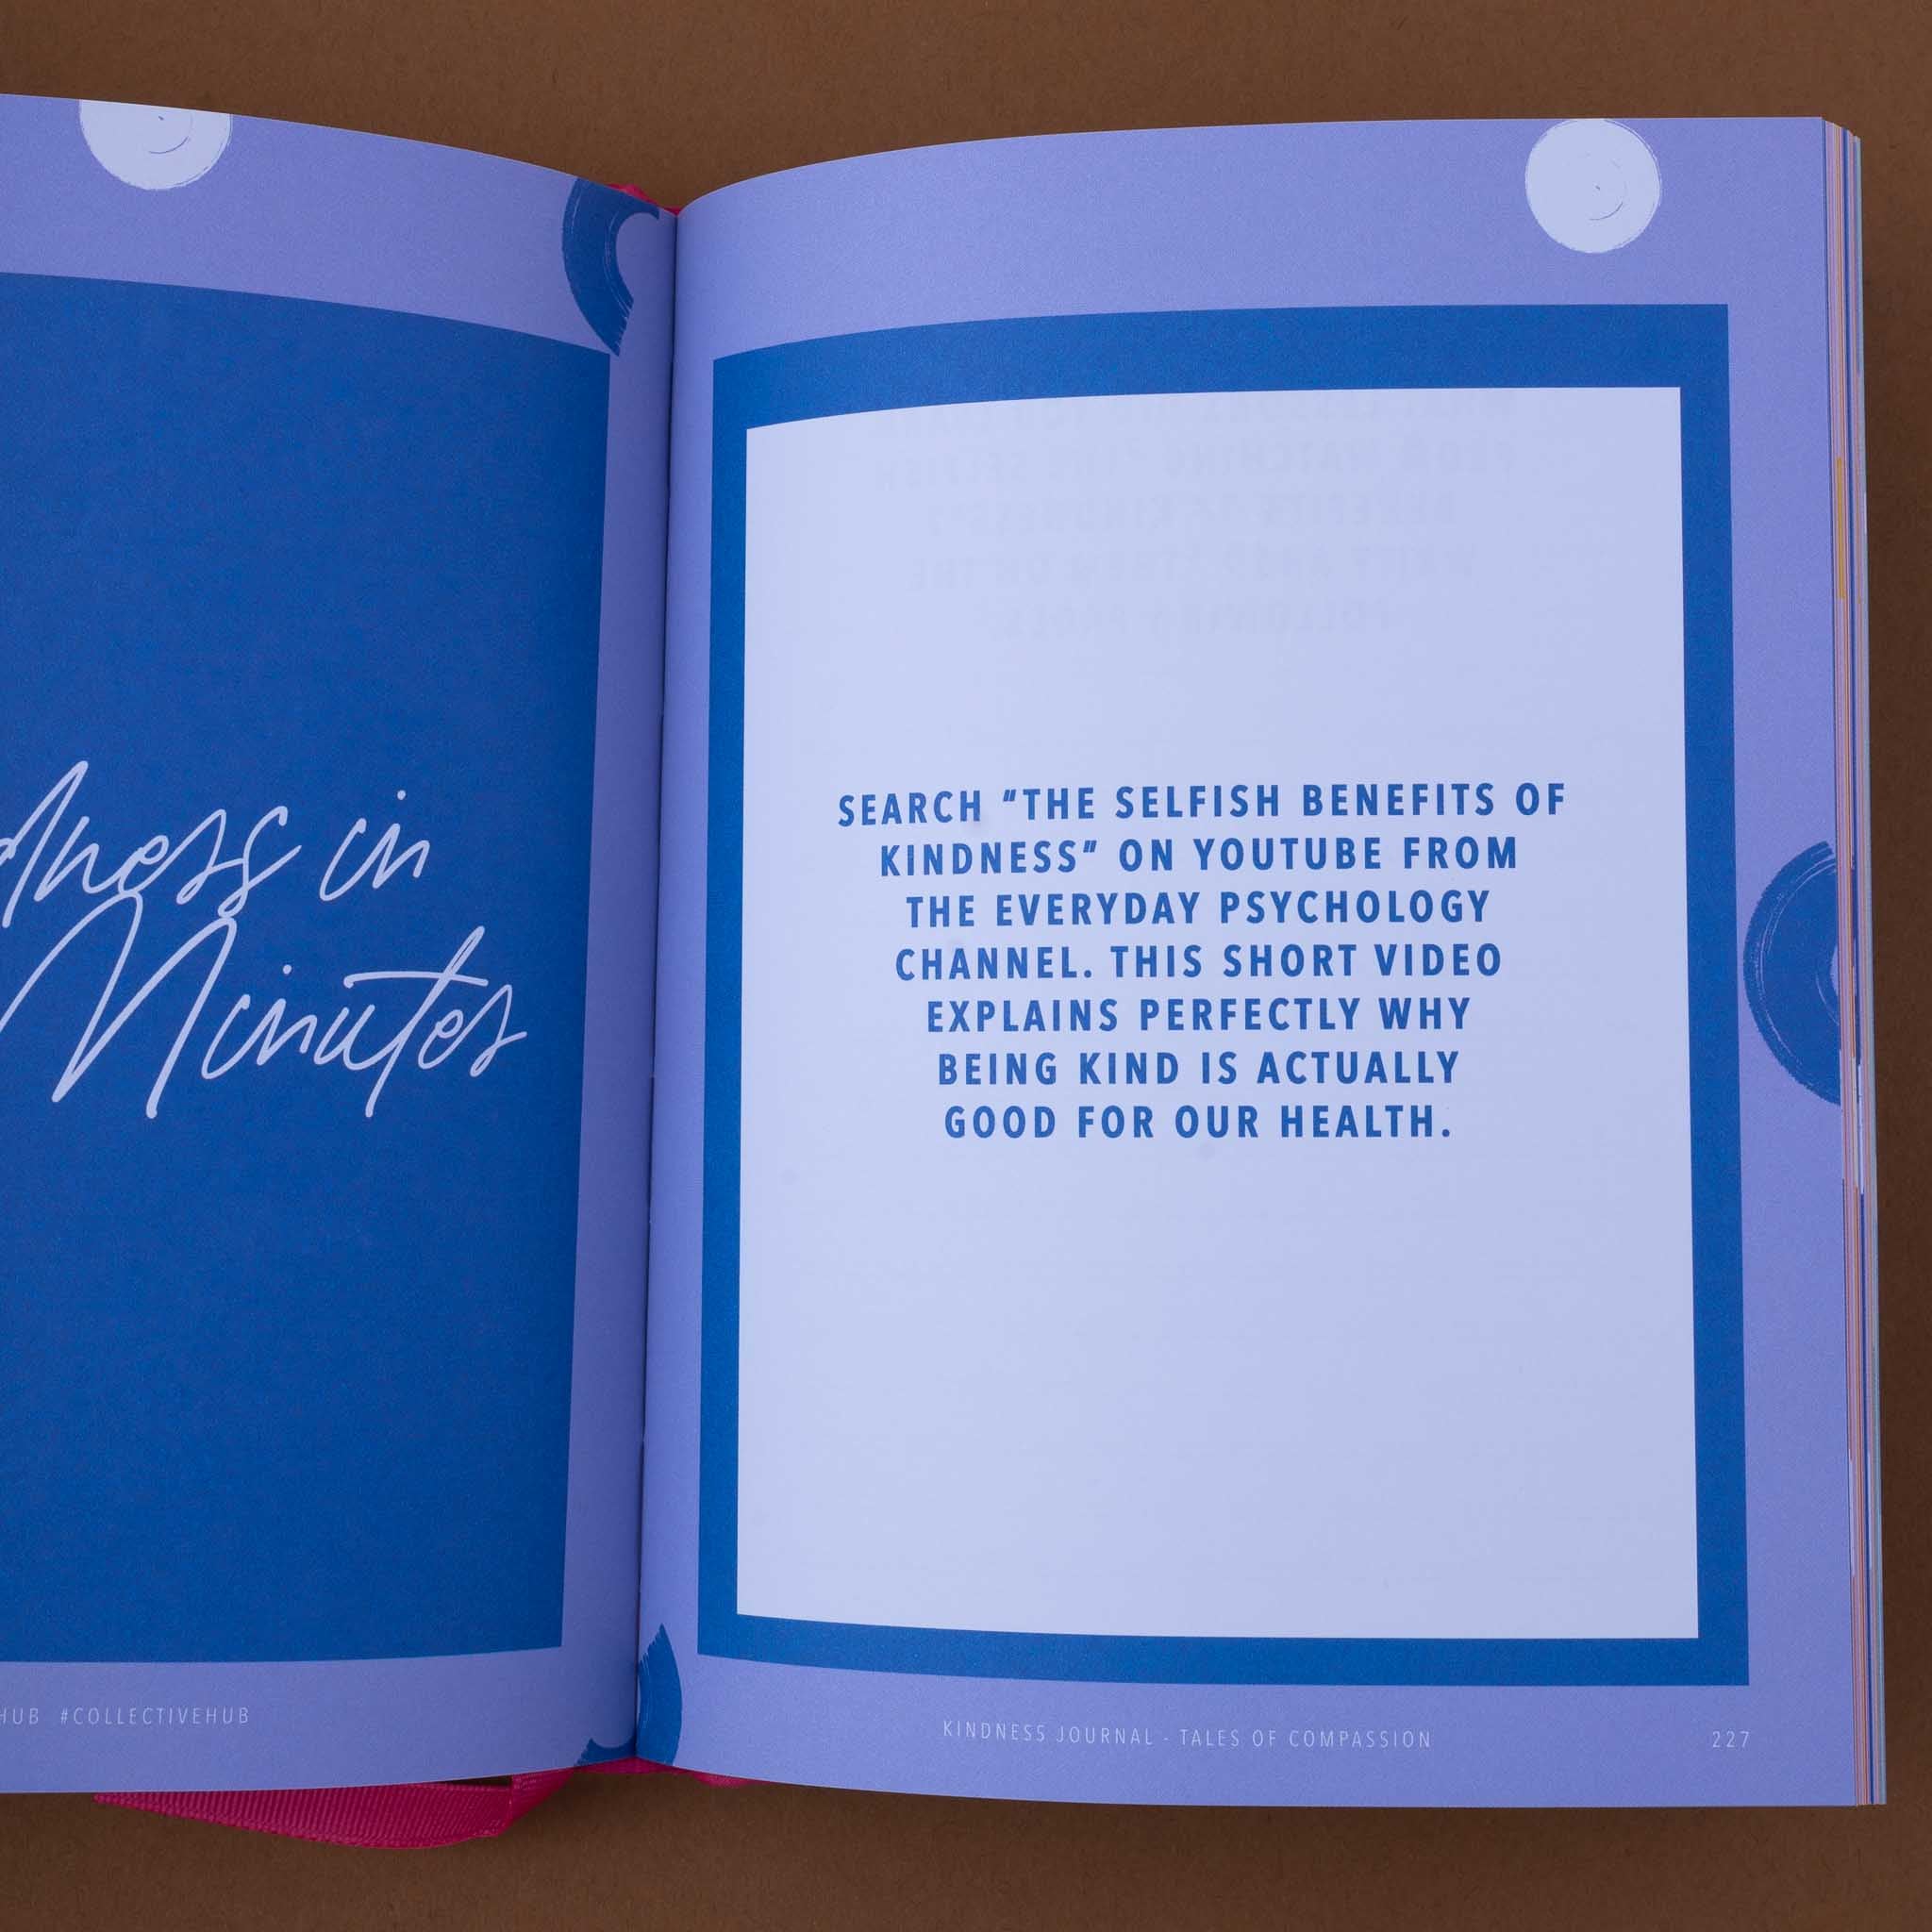 in
Minutes
HUB #COLLECTIVEHUB
SEARCH "THE SELFISH BENEFITS OF
KINDNESS" ON YOUTUBE FROM
THE EVERYDAY PSYCHOLOGY
CHANNEL. THIS SHORT VIDEO
EXPLAINS PERFECTLY WHY
BEING KIND IS ACTUALLY
GOOD FOR OUR HEALTH.
KINDNESS JOURNAL - TALES OF COMPASSION 227